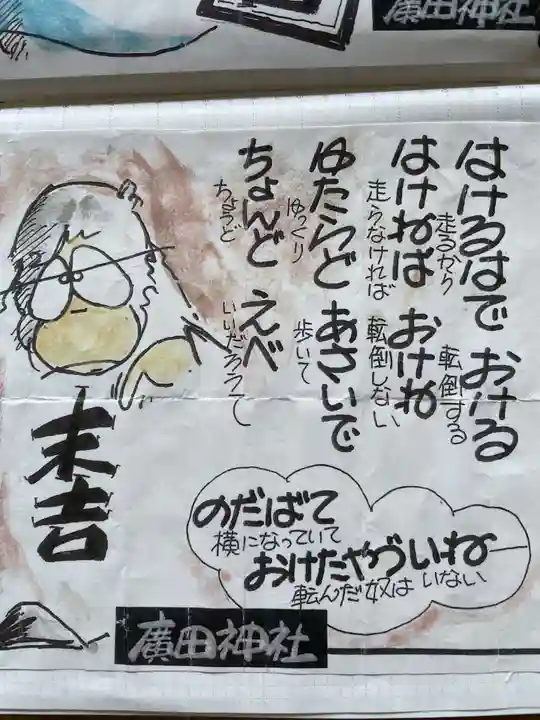 廣田神社
はけるはで おける
走るから 転倒する
はけねば おけね
走らなければ 転倒しない
ゆたらど あさいで
ゆっくり 歩いて
ちょんど えべ
ちょうど いいだろうて
末吉
のだばて
横になっていて
おけたやづいね
転んだ奴は いない
廣田神社